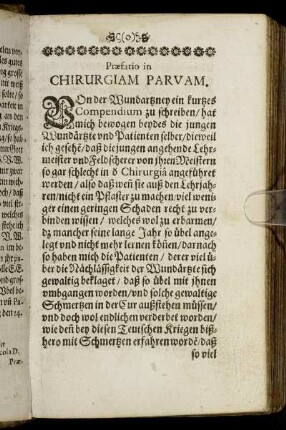 (o)
Præfatio in
CHIRURGIAM PARVAM.
Von der Wundartzney ein kurtzes
Compendium zu schreiben / hat
mich bewogen beydes die jungen
Wundärtzte vnd Patienten selber / dieweil
ich gesehē / daß die jungen angehende Lehr-
meister vnd Feldscherer von jhren Meistern
so gar schlecht in d Chirurgiâ angeführet
werden / also daß weñ sie auß den Lehrjah-
ren / nicht ein Pflaster zu machen / viel weni-
ger einen geringen Schaden recht zu ver-
binden wissen / welches wol zu erbarmen /
dz mancher seine lange Jahr so übel ange-
legt vnd nicht mehr lernen köñen / darnach
so haben mich die Patienten / derer viel ü-
ber die Nachlässigkeit der Wundärtzte sich
gewaltig beklaget / daß so übel mit jhnen
vmbgangen worden / vnd solche gewaltige
Schmertzen in der Cur außstehen müssen /
vnd doch wol endlichen verderbet worden /
wie deñ bey diesen Teutschen Kriegen biß-
hero mit Schmertzen erfahren wordē / daß
so viel